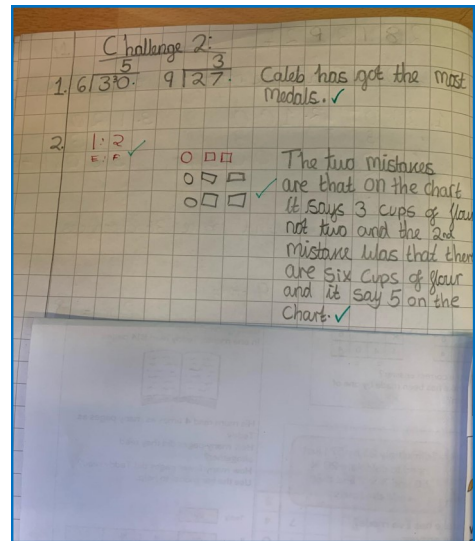 Challenge 2:
1. 5 3
6)30. 9)27. Caleb has got the most
medals. ✓
2. 1:2 ✓
E:F
The two mistakes
are that on the chart
it says 3 cups of flou
not two and the 2nd
mistake was that ther
are six cups of flour
and it say 5 on the
chart. ✓